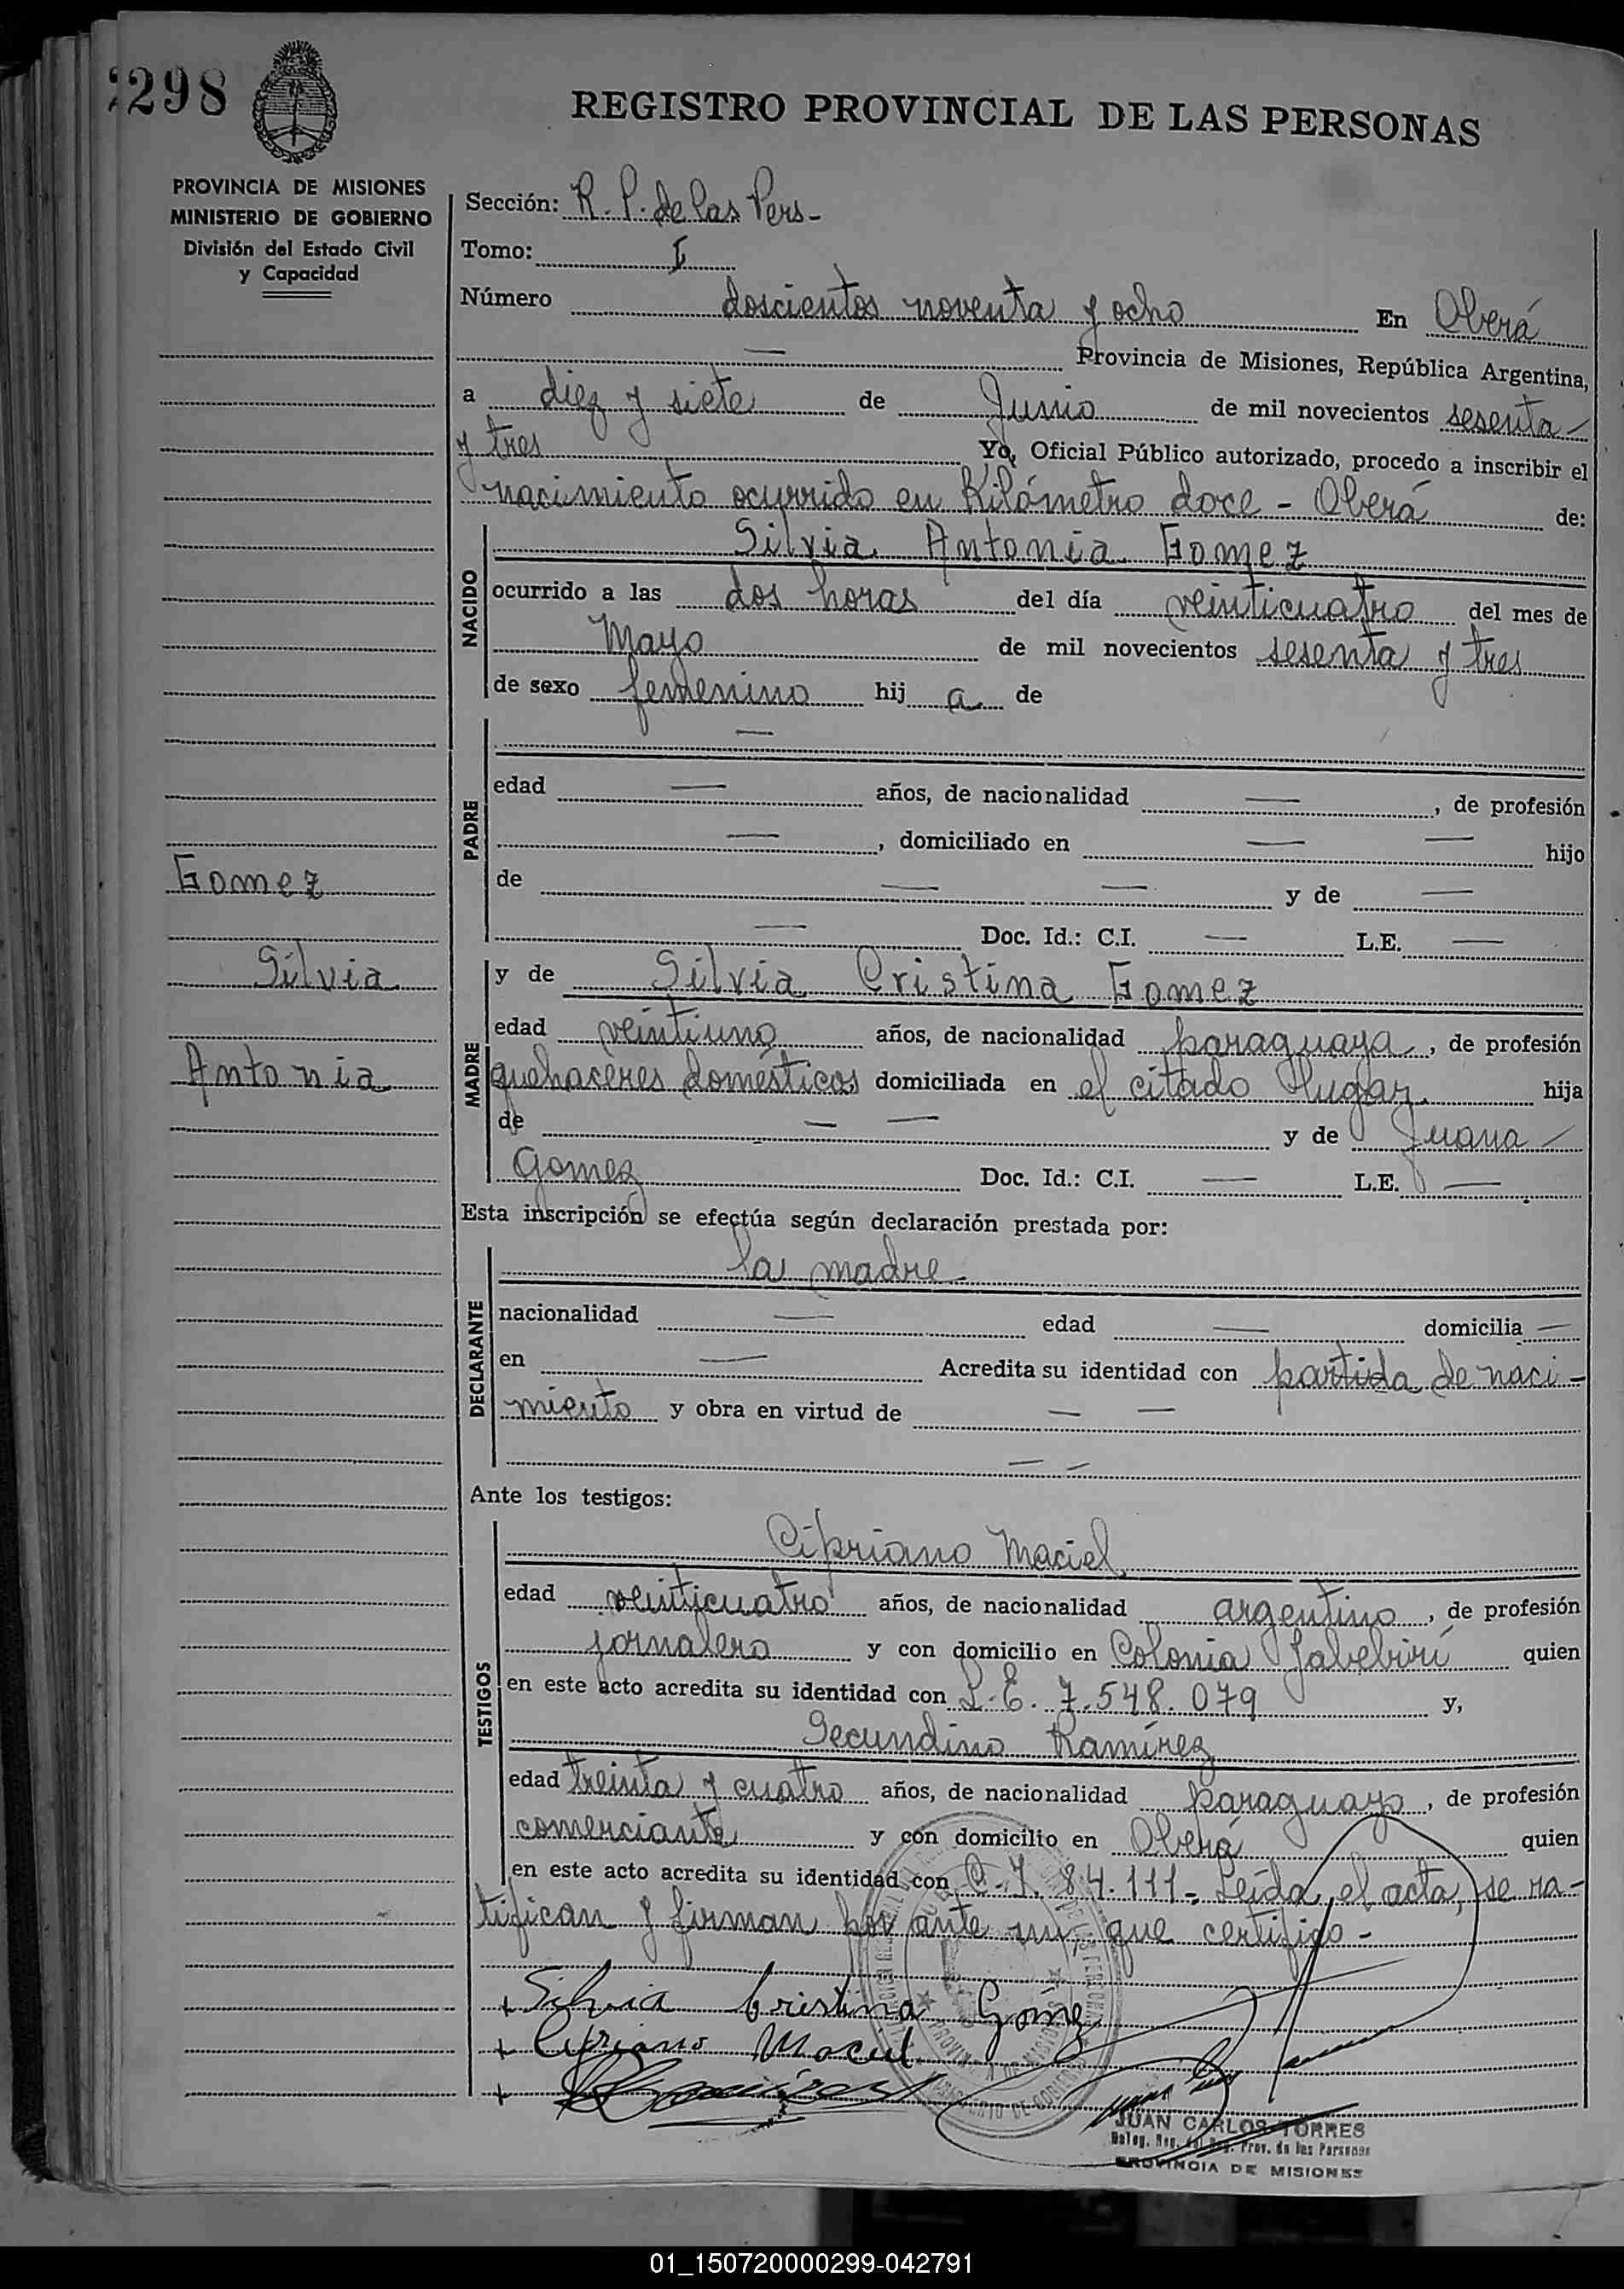 298
REGISTRO PROVINCIAL DE LAS PERSONAS
PROVINCIA DE MISIONES
MINISTERIO DE GOBIERNO
División del Estado Civil
y Capacidad
Sección: R. P. de las Pers-
Tomo: I
Número doscientos noventa y ocho En Oberá
— Provincia de Misiones, República Argentina,
a diez y siete de Junio de mil novecientos sesenta
y tres Yo, Oficial Público autorizado, procedo a inscribir el
nacimiento ocurrido en Kilómetro doce - Oberá de:
NACIDO
Silvia Antonia Gomez
ocurrido a las dos horas del día veinticuatro del mes de
Mayo de mil novecientos sesenta y tres
de sexo femenino hij a de
PADRE
—
edad — años, de nacionalidad —, de profesión
—, domiciliado en — — hijo
de — — y de —
— Doc. Id.: C.I. — L.E. —
Gomez
Silvia
Antonia
MADRE
y de Silvia Cristina Gomez
edad veintiuno años, de nacionalidad paraguaya, de profesión
quehaceres domésticos domiciliada en el citado lugar. hija
de — — y de Juana
Gomez Doc. Id.: C.I. — L.E. —
Esta inscripción se efectúa según declaración prestada por:
DECLARANTE
la madre
nacionalidad — edad — domicilia —
en — Acredita su identidad con partida de naci-
miento y obra en virtud de — —
— —
Ante los testigos:
TESTIGOS
Cipriano Maciel
edad veinticuatro años, de nacionalidad argentino, de profesión
jornalero y con domicilio en Colonia Yabebirí quien
en este acto acredita su identidad con L.E. 7.548.079 y,
Secundino Ramírez
edad treinta y cuatro años, de nacionalidad paraguayo, de profesión
comerciante y con domicilio en Oberá quien
en este acto acredita su identidad con C.I. 84.111- Leída el acta, se ra-
tifican y firman por ante mi, que certifico -
+ Silvia Cristina Gomez
+ Cipriano Maciel
+ Ramirez
JUAN CARLOS TORRES
Prov. de las Personas
PROVINCIA DE MISIONES
01_150720000299-042791